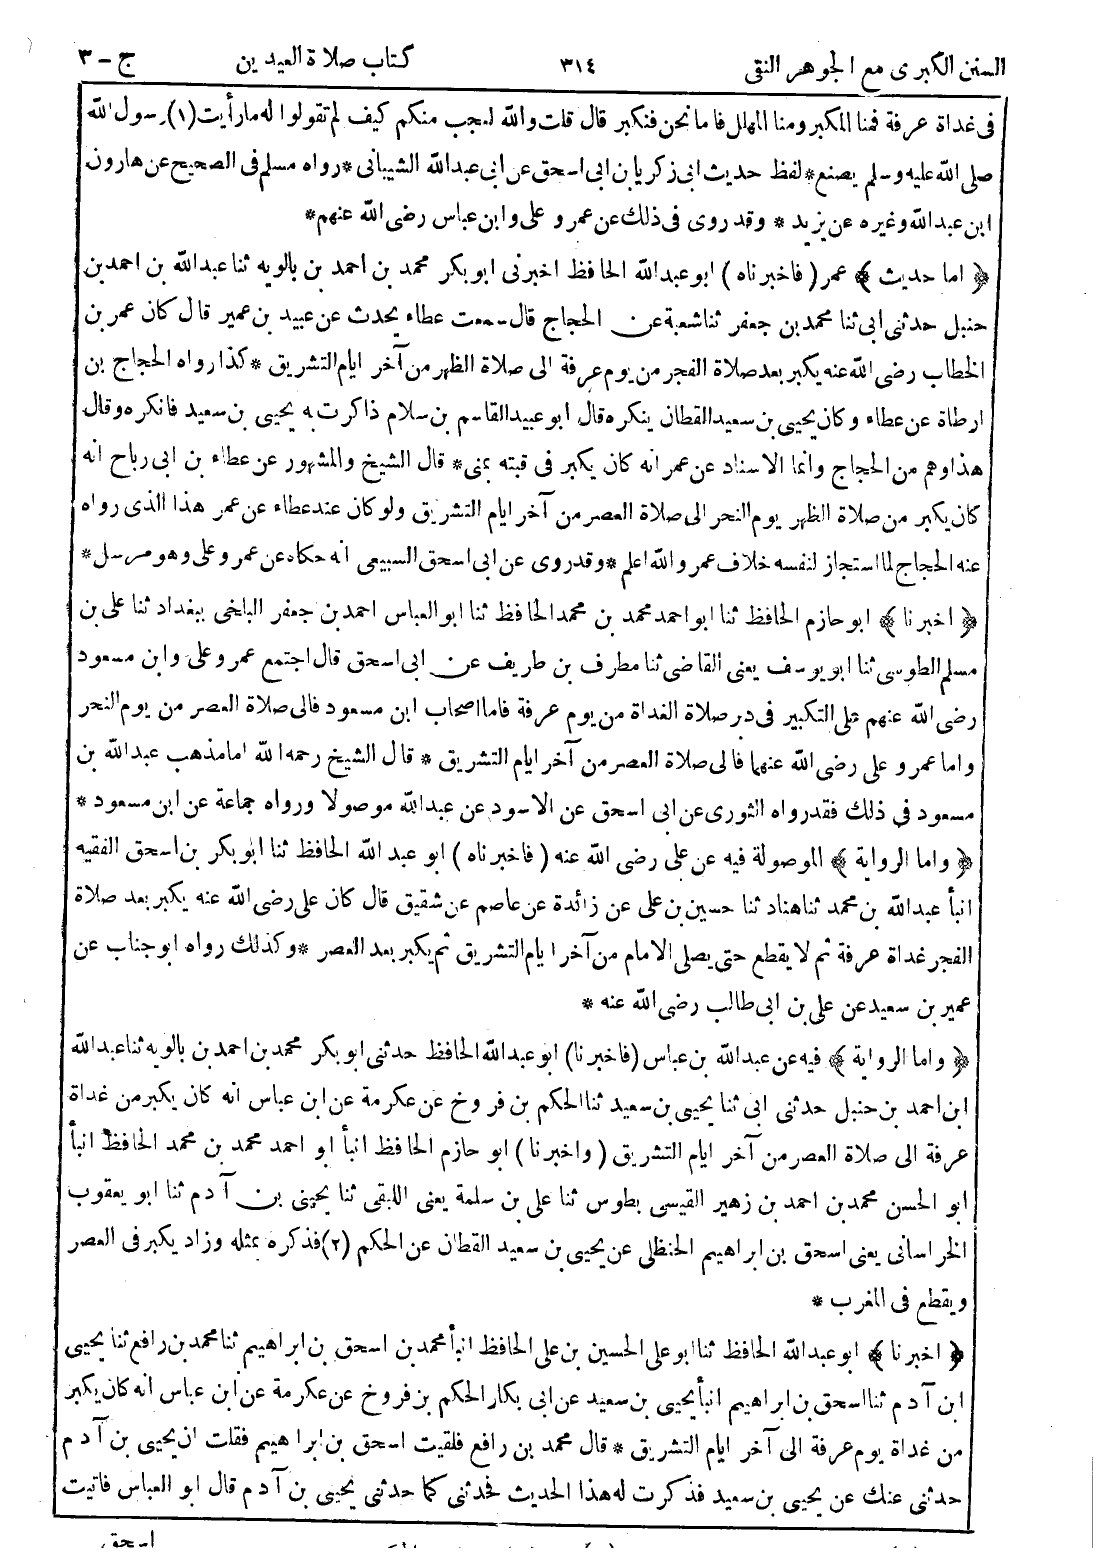 السنن الكبرى مع الجوهر النقى ٣١٤ كتاب صلاة العيدين ج – ٣
فى غداة عرفة فمنا المكبر ومنا المهلل فاما نحن فنكبر قال قلت والله لعجب منكم كيف لم تقولوا له ما رأيت (١) رسول الله
صلى الله عليه وسلم يصنع * لفظ حديث ابى زكريا بن ابى اسحق عن ابى عبد الله الشيبانى * رواه مسلم فى الصحيح عن هارون
ابن عبد الله وغيره عن يزيد * وقد روى فى ذلك عن عمر و على وابن عباس رضى الله عنهم *
﴿ اما حديث ﴾ عمر ( فاخبرناه ) ابو عبد الله الحافظ اخبرنى ابو بكر محمد بن احمد بن بالويه ثنا عبد الله بن احمد بن
حنبل حدثنى ابى ثنا محمد بن جعفر ثنا شعبة عن الحجاج قال سمعت عطاء يحدث عن عبيد بن عمير قال كان عمر بن
الخطاب رضى الله عنه يكبر بعد صلاة الفجر من يوم عرفة الى صلاة الظهر من آخر ايام التشريق * كذا رواه الحجاج بن
ارطاة عن عطاء وكان يحيى بن سعيد القطان ينكره قال ابو عبيد القاسم بن سلام ذاكرت به يحيى بن سعيد فانكره وقال
هذا وهم من الحجاج وانما الاسناد عن عمر انه كان يكبر فى قبته بمنى * قال الشيخ والمشهور عن عطاء بن ابى رباح انه
كان يكبر من صلاة الظهر يوم النحر الى صلاة العصر من آخر ايام التشريق ولو كان عند عطاء عن عمر هذا الذى رواه
عنه الحجاج لما استجاز لنفسه خلاف عمر والله اعلم * وقد روى عن ابى اسحق السبيعى انه حكاه عن عمر وعلى وهو مرسل *
﴿ اخبرنا ﴾ ابو حازم الحافظ ثنا ابو احمد محمد بن محمد الحافظ ثنا ابو العباس احمد بن جعفر البلخى ببغداد ثنا على بن
مسلم الطوسى ثنا ابو يوسف يعنى القاضى ثنا مطرف بن طريف عن ابى اسحق قال اجتمع عمر وعلى وابن مسعود
رضى الله عنهم على التكبير فى دبر صلاة الغداة من يوم عرفة فاما اصحاب ابن مسعود فالى صلاة العصر من يوم النحر
واما عمر و على رضى الله عنهما فالى صلاة العصر من آخر ايام التشريق * قال الشيخ رحمه الله اما مذهب عبد الله بن
مسعود فى ذلك فقد رواه الثورى عن ابى اسحق عن الاسود عن عبد الله موصولا ورواه جماعة عن ابن مسعود *
﴿ واما الرواية ﴾ الموصولة فيه عن على رضى الله عنه ( فاخبرناه ) ابو عبد الله الحافظ ثنا ابو بكر بن اسحق الفقيه
انبأ عبد الله بن محمد ثنا هناد ثنا حسين بن على عن زائدة عن عاصم عن شقيق قال كان على رضى الله عنه يكبر بعد صلاة
الفجر غداة عرفة ثم لا يقطع حتى يصلى الامام من آخر ايام التشريق ثم يكبر بعد العصر * وكذلك رواه ابو جناب عن
عمير بن سعيد عن على بن ابى طالب رضى الله عنه *
﴿ واما الرواية ﴾ فيه عن عبد الله بن عباس (فاخبرنا) ابو عبد الله الحافظ حدثنى ابو بكر محمد بن احمد بن بالويه ثنا عبد الله
ابن احمد بن حنبل حدثنى ابى ثنا يحيى بن سعيد ثنا الحكم بن فروخ عن عكرمة عن ابن عباس انه كان يكبر من غداة
عرفة الى صلاة العصر من آخر ايام التشريق ( واخبرنا ) ابو حازم الحافظ انبأ ابو احمد محمد بن محمد الحافظ انبأ
ابو الحسن محمد بن احمد بن زهير القيسى بطوس ثنا على بن سلمة يعنى اللبقى ثنا يحيى بن آدم ثنا ابو يعقوب
الخراسانى يعنى اسحق بن ابراهيم الحنظلى عن يحيى بن سعيد القطان عن الحكم (٢) فذكره بمثله وزاد يكبر فى العصر
ويقطع فى المغرب *
﴿ اخبرنا ﴾ ابو عبد الله الحافظ ثنا ابو على الحسين بن على الحافظ انبأ محمد بن اسحق بن ابراهيم ثنا محمد بن رافع ثنا يحيى
ابن آدم ثنا اسحق بن ابراهيم انبأ يحيى بن سعيد عن ابى بكار الحكم بن فروخ عن عكرمة عن ابن عباس انه كان يكبر
من غداة يوم عرفة الى آخر ايام التشريق * قال محمد بن رافع فلقيت اسحق بن ابراهيم فقلت ان يحيى بن آدم
حدثنى عنك عن يحيى بن سعيد فذكرت له هذا الحديث فحدثنى كما حدثنى يحيى بن آدم قال ابو العباس فاتيت
اسحق